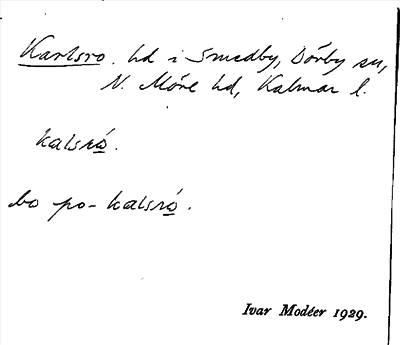 Karlsro. hd i Smedby, Dörby sn,
N. Möre hd, Kalmar l.
kalsró.
bo po- kalsró.
Ivar Modéer 1929.